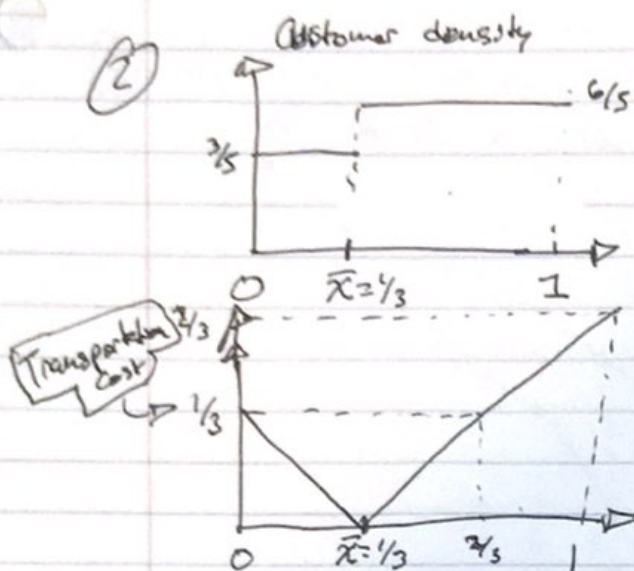 ② Customer density
6/5
3/5
0 x̄=1/3 1
2/3
Transportation
cost
1/3
0 x̄=1/3 2/3 1